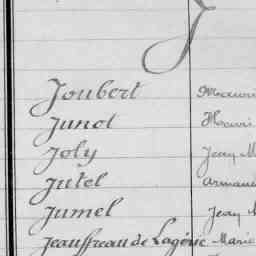 J
Joubert
Junot Henri
Joly Jean M
Jutel Armand
Jumel Jean
Jeauffreau de Lagérie Marie